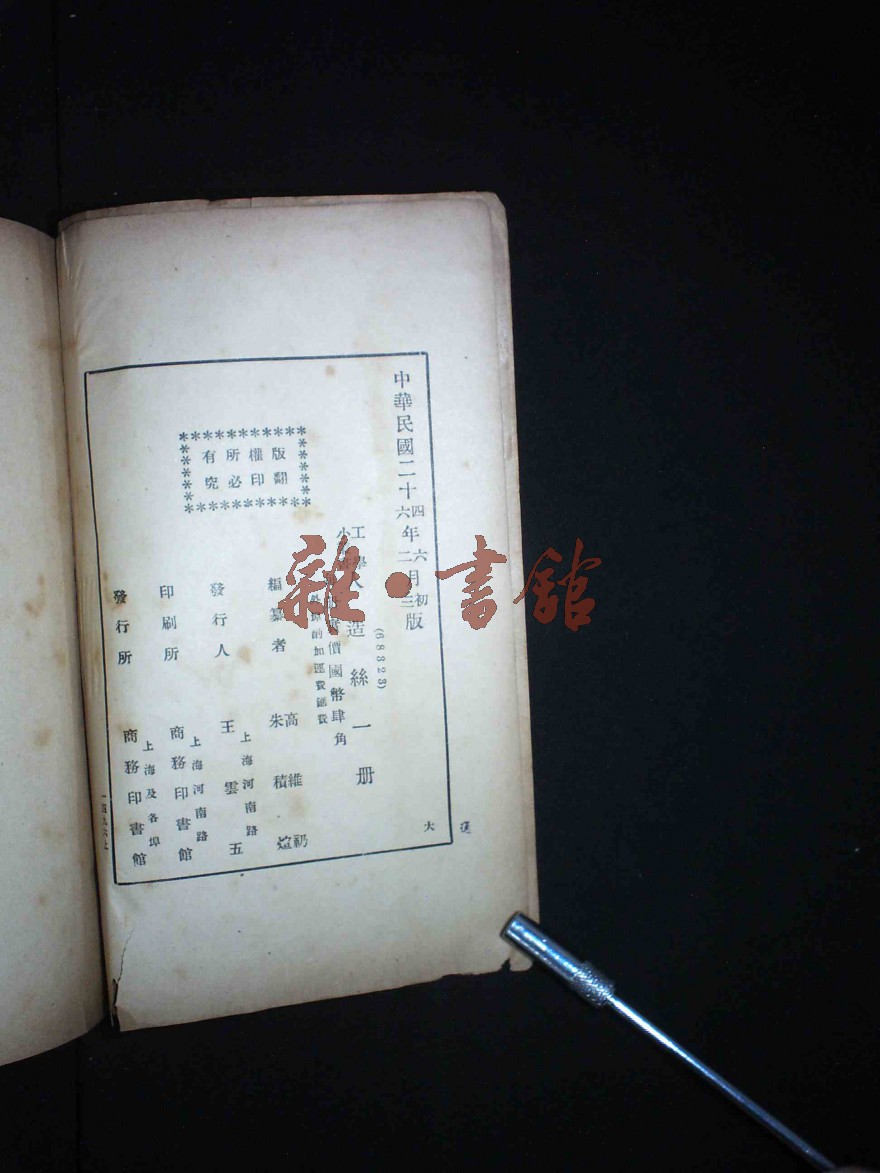 中華民國二十四年六月初版
六 二 三
(68323)
工學小叢書 人造絲一册
價國幣肆角
外埠酌加運費匯費
版權所有
翻印必究
編纂者 高維礽
朱積煊
上海河南路
發行人 王雲五
上海河南路
印刷所 商務印書館
上海及各埠
發行所 商務印書館
大
雜·書館